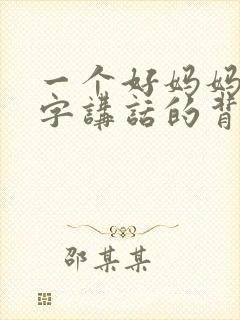 一个好妈妈
字講話的背
邵某某